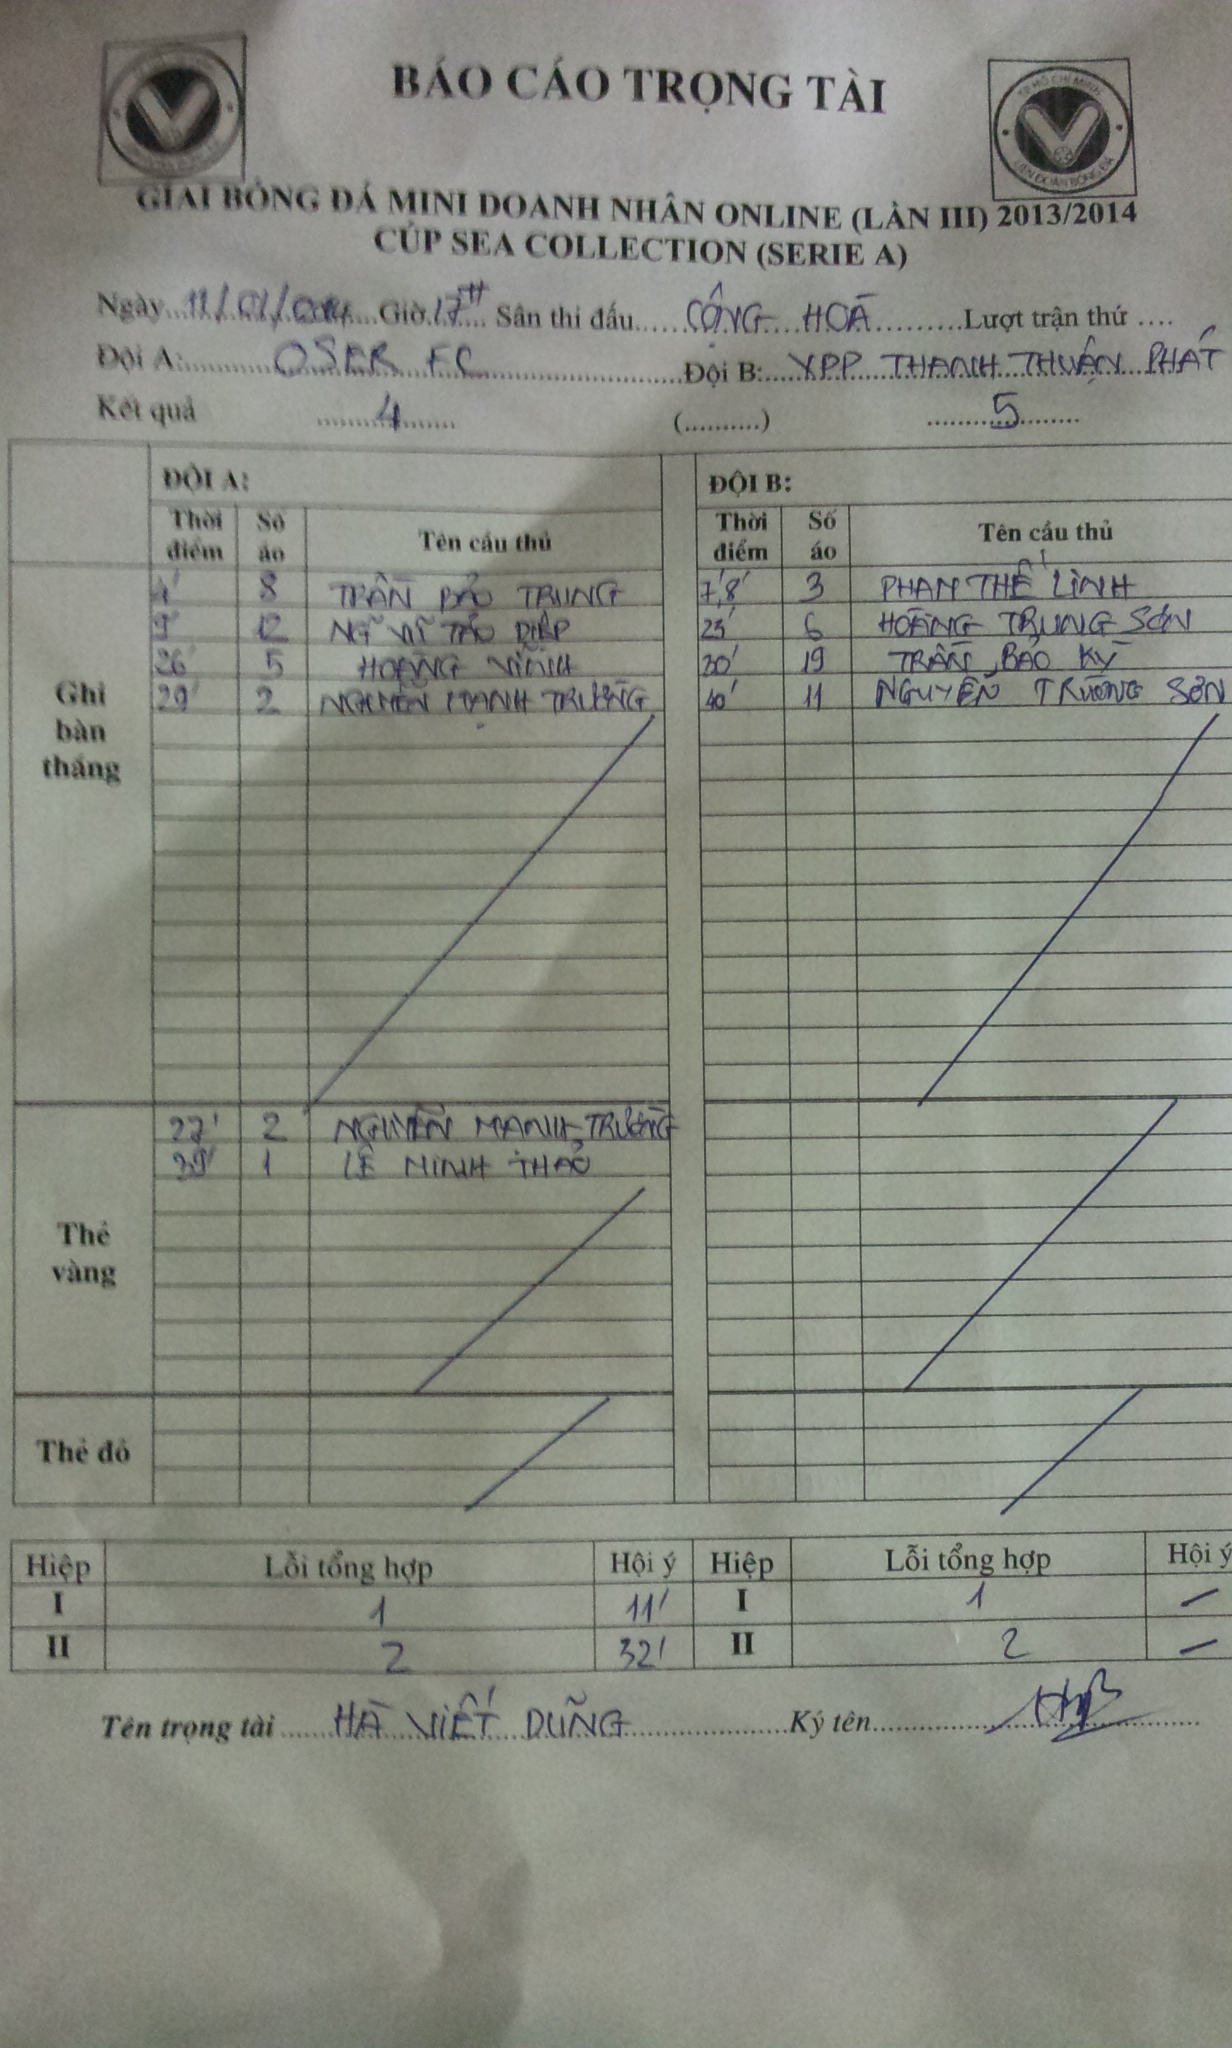 BÁO CÁO TRỌNG TÀI
TP HỒ CHÍ MINH
LIÊN ĐOÀN BÓNG ĐÁ
GIẢI BÓNG ĐÁ MINI DOANH NHÂN ONLINE (LẦN III) 2013/2014
CÚP SEA COLLECTION (SERIE A)
Ngày...11/01/2014...Giờ.17H.... Sân thi đấu......CỘNG HOÀ..........Lượt trận thứ ....
Đội A:...........OSER FC.......................Đội B:....VPP THANH THUẬN PHÁT
Kết quả ........4........ (..........) ........5........
ĐỘI A: ĐỘI B:
Thời điểm Số áo Tên cầu thủ Thời điểm Số áo Tên cầu thủ
Ghi bàn thắng
8 TRẦN BẢO TRUNG 7',8' 3 PHAN THẾ LINH
9' 12 23' 6 HOÀNG TRUNG SƠN
26' 5 HOÀNG 30' 19 TRẦN BẢO KỲ
29' 2 NGUYỄN MẠNH TRƯỜNG 40' 11 NGUYỄN TRƯỜNG SƠN
Thẻ vàng
27' 2 NGUYỄN MẠNH TRƯỜNG
39' 1 LÊ MINH THẢO
Thẻ đỏ
Hiệp Lỗi tổng hợp Hội ý Hiệp Lỗi tổng hợp Hội ý
I 1 11' I 1 –
II 2 32' II 2 –
Tên trọng tài ......HÀ VIẾT DŨNG..................Ký tên..............................